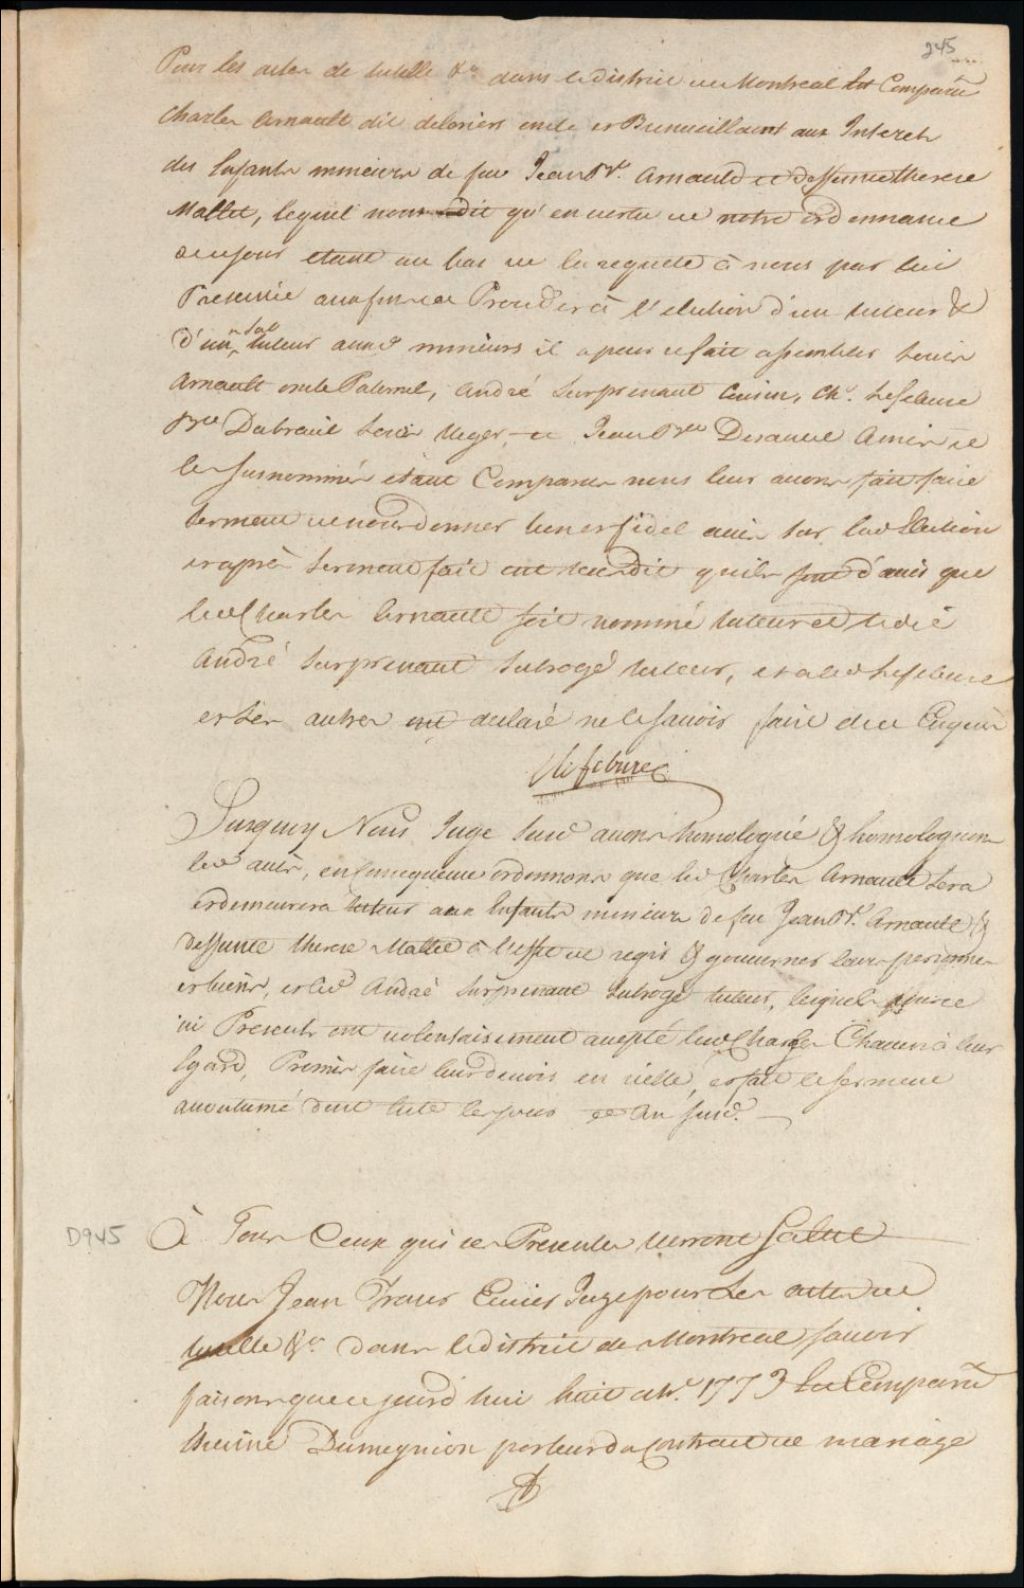 245
Pour les actes de tutelle &a dans le district de Montreal est Comparu
Charles Arnault dit deloriers oncle et Bienveillant aux Interets
des Enfants mineurs de feu Jean Bte. Arnault et deffunte therese
Mallet, lequel nous a dit qu'en vertu de notre ordonnance
de ce jour etant au bas de la requete à nous par lui
Presentée aux fins de Proceder à l'election d'un tuteur &
d'un sub tuteur auxd mineurs il a pour ce fait assembler Louis
Arnault oncle Paternel, André Surprenant Cousin, Ch. Lefebure
Bte Dubreuil Louis Veger, et Jean Bte Amis et
les susnommés étant Comparus nous leur avons fait faire
serment de nous donner bon et fidel avis sur lad Election
et après serment fait ont tous dit quils sont d'avis que
led Charles Arnault soit nommé tuteur et ledit
André Surprenant subrogé tuteur, et a led Lefebure
et les autres ont declaré ne le savoir faire de ce Enquis
Lefebure
Surquoy Nous Juge susd avons homologué & homologuons
led avis, en consequence ordonnons que led Charles Arnault sera
et demeurera tuteur aux Enfants mineurs de feu Jean Bte. Arnault &
deffunte therese Mallet à l'effet de regir & gouverner leurs personnes
et biens, et led André Surprenant subrogé tuteur, lesquels
ici Presents ont volontairement accepté lesd Charges Chacun à leur
Egard, Promis faire leur devoir en icelle, et fait le serment
accoutumé dont acte les jours et an susd.
D945
À Tous Ceux qui ces Presentes verront Salut
Nous Jean Fraser Ecuier Juge pour Les actes de
tutelle &a dans le district de Montreal savoir
faisons que ce jourd hui huit 1773 est Comparu
Dumeynion porteur du Contrat de mariage